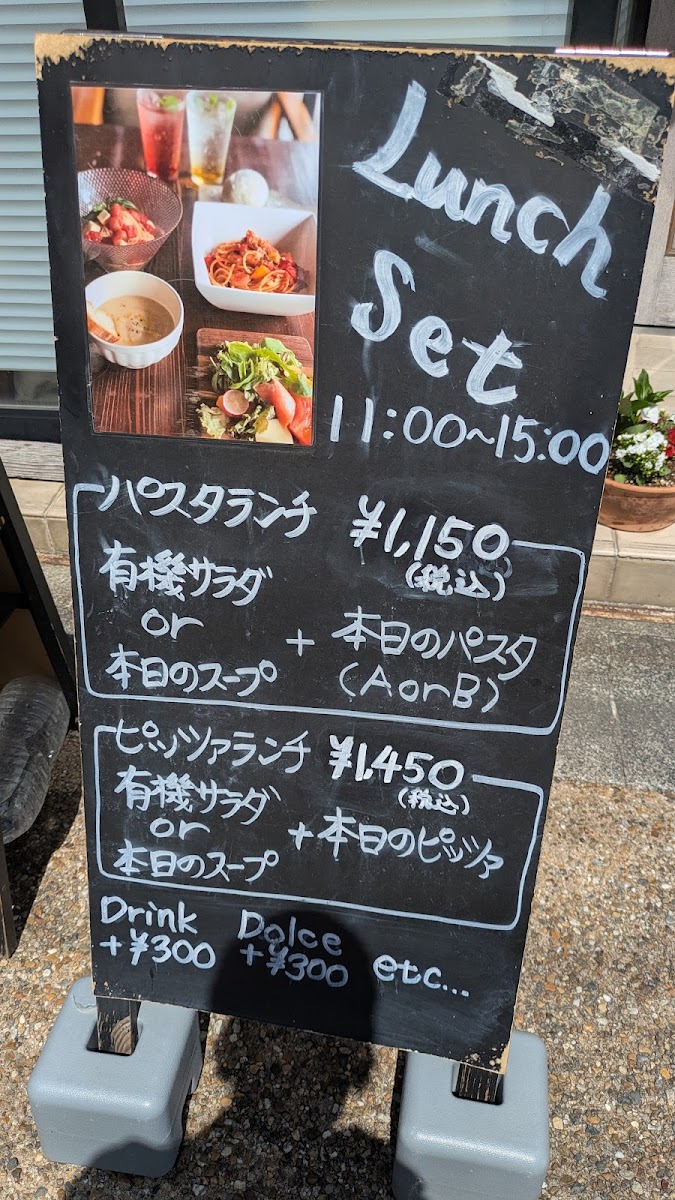 Lunch
Set
11:00~15:00
パスタランチ ¥1,150
(税込)
有機サラダ
or
本日のスープ
+ 本日のパスタ
(A or B)
ピッツァランチ ¥1,450
(税込)
有機サラダ
or
本日のスープ
+ 本日のピッツァ
Drink
+¥300
Dolce
+¥300
etc...